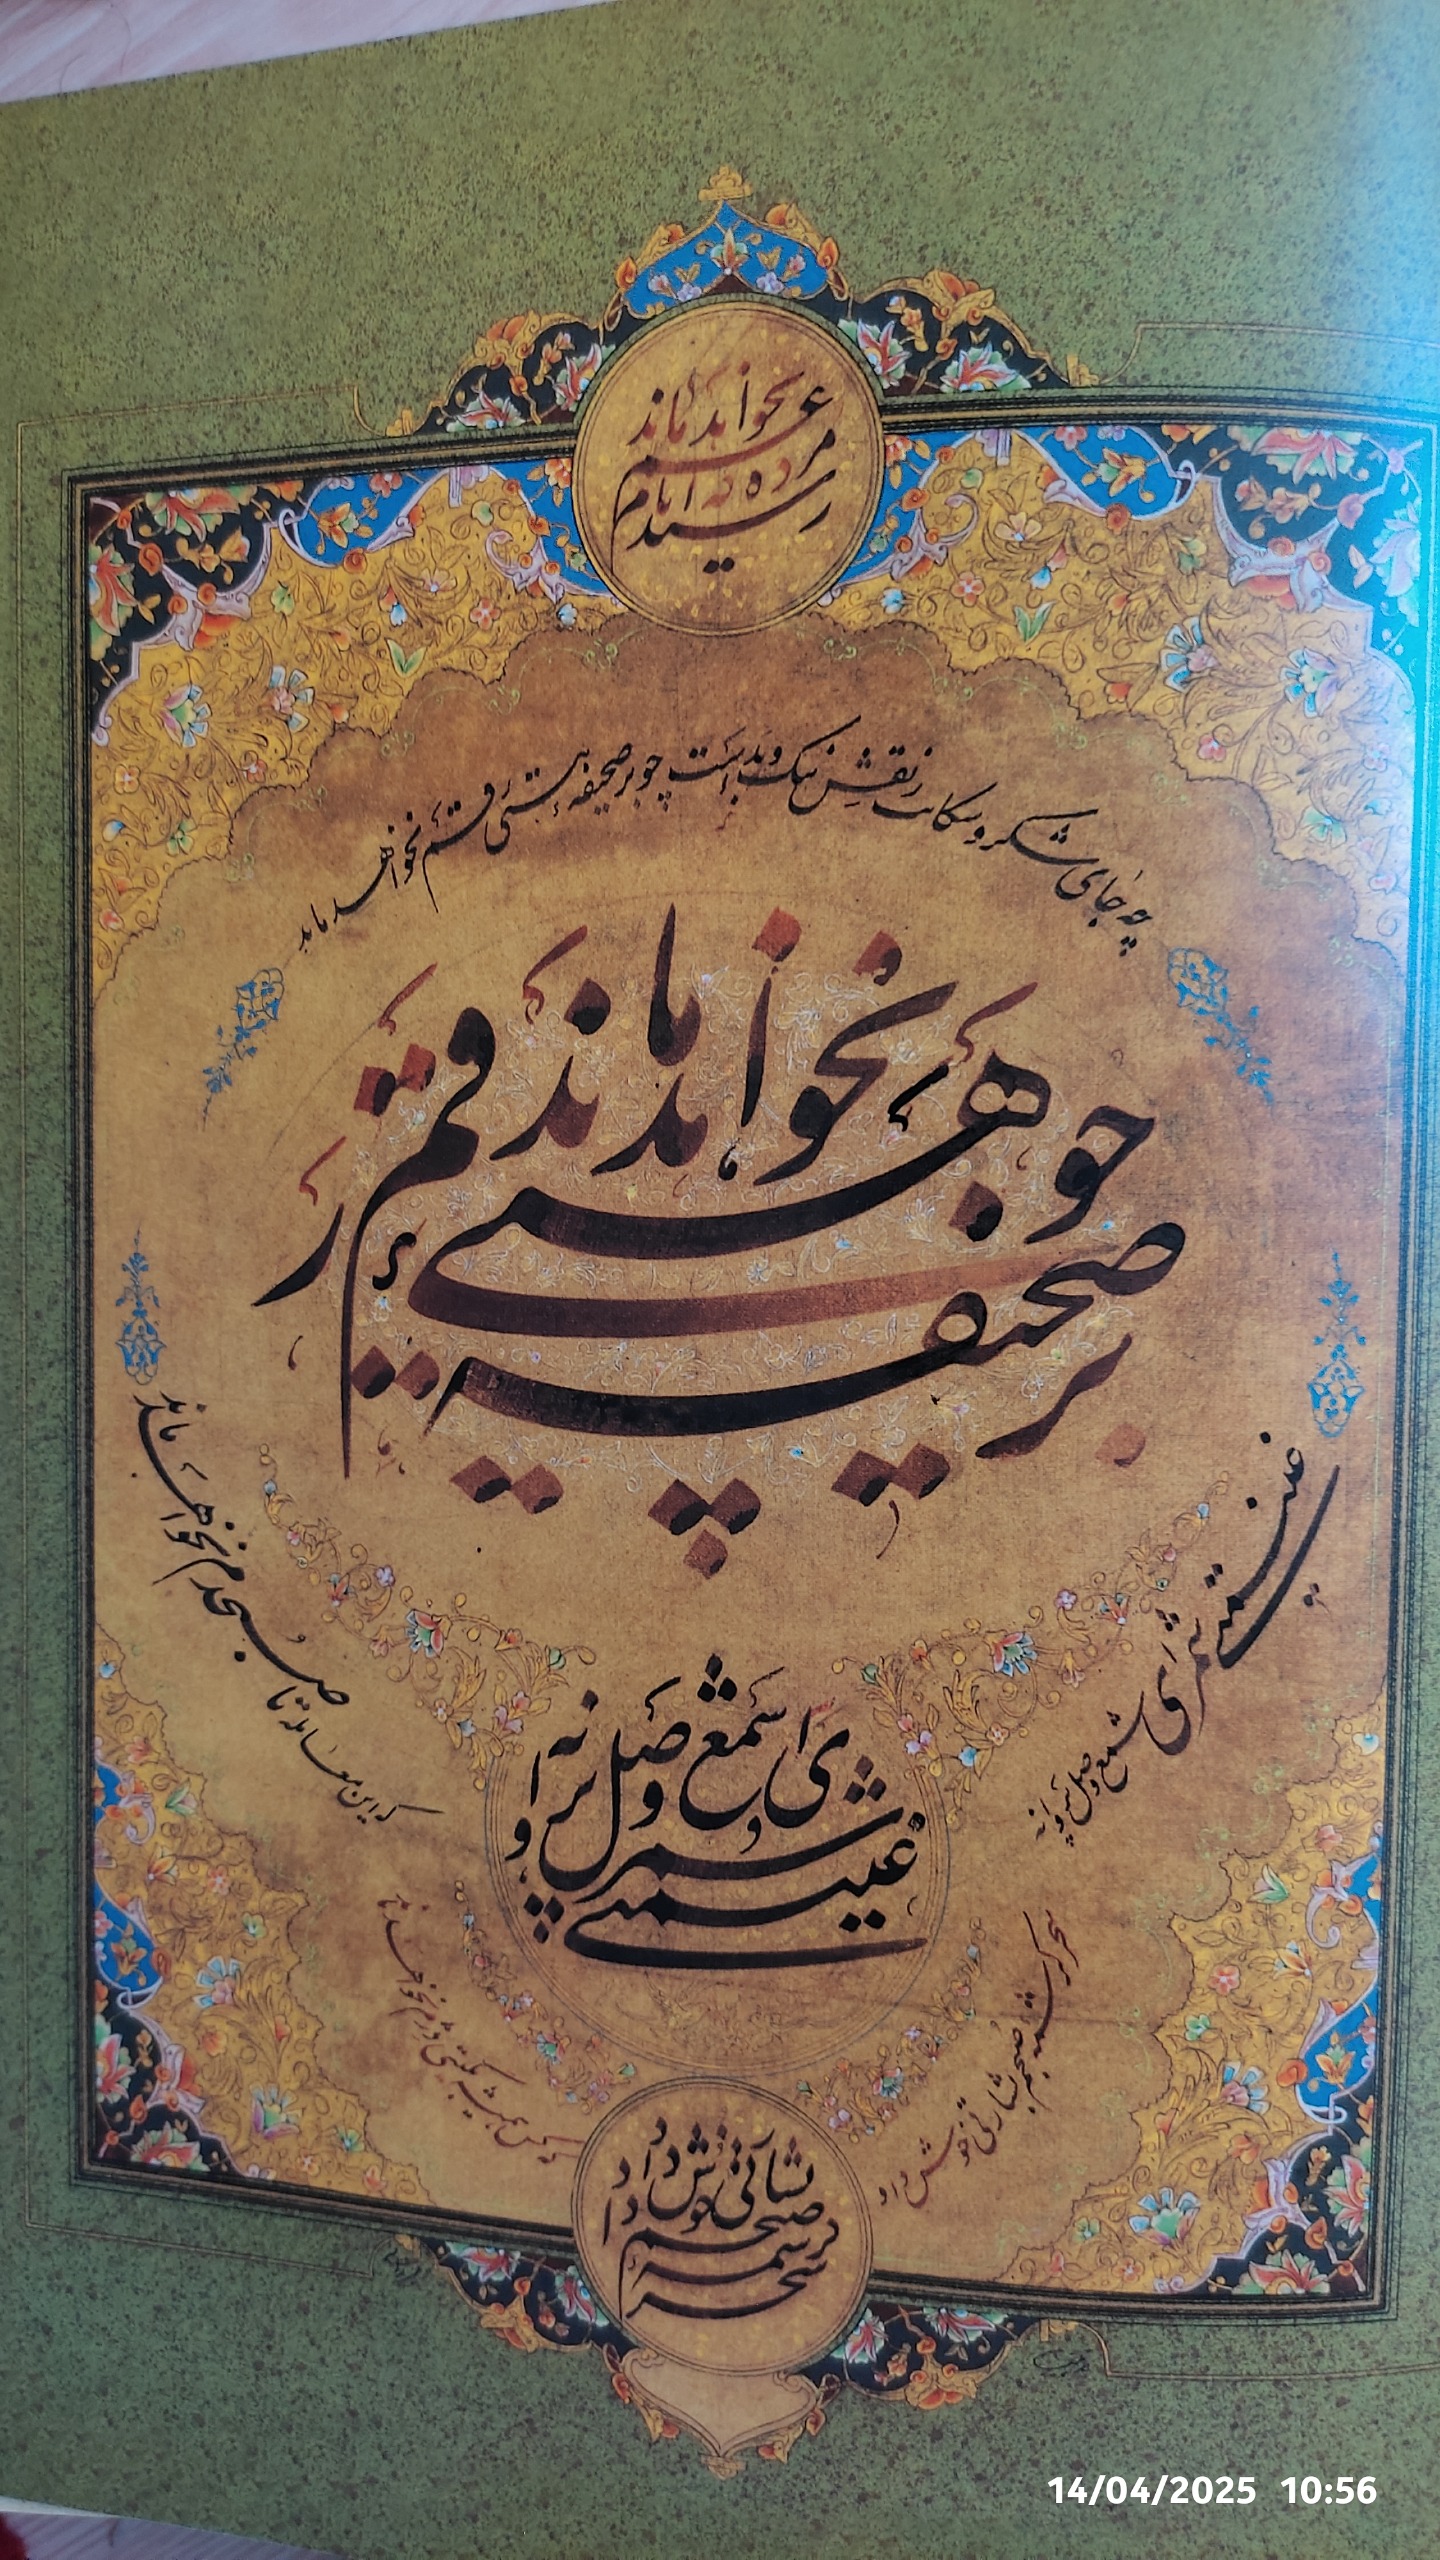 رسید مژده که ایام غم نخواهد ماند
چه جای شکر و شکایت ز نقش نیک و بد است چو بر صحیفهٔ هستی رقم نخواهد ماند
چو بر صحیفهٔ هستی رقم نخواهد ماند
غنیمتی شمر ای شمع وصل پروانه
که این معامله تا صبحدم نخواهد ماند
غنیمتی شمر ای شمع وصل پروانه
سحر کرشمه صبحم بشارتی خوش داد
که کس همیشه بگیتی دژم نخواهد ماند
سحر کرشمه صبحم بشارتی خوش داد
14/04/2025 10:56